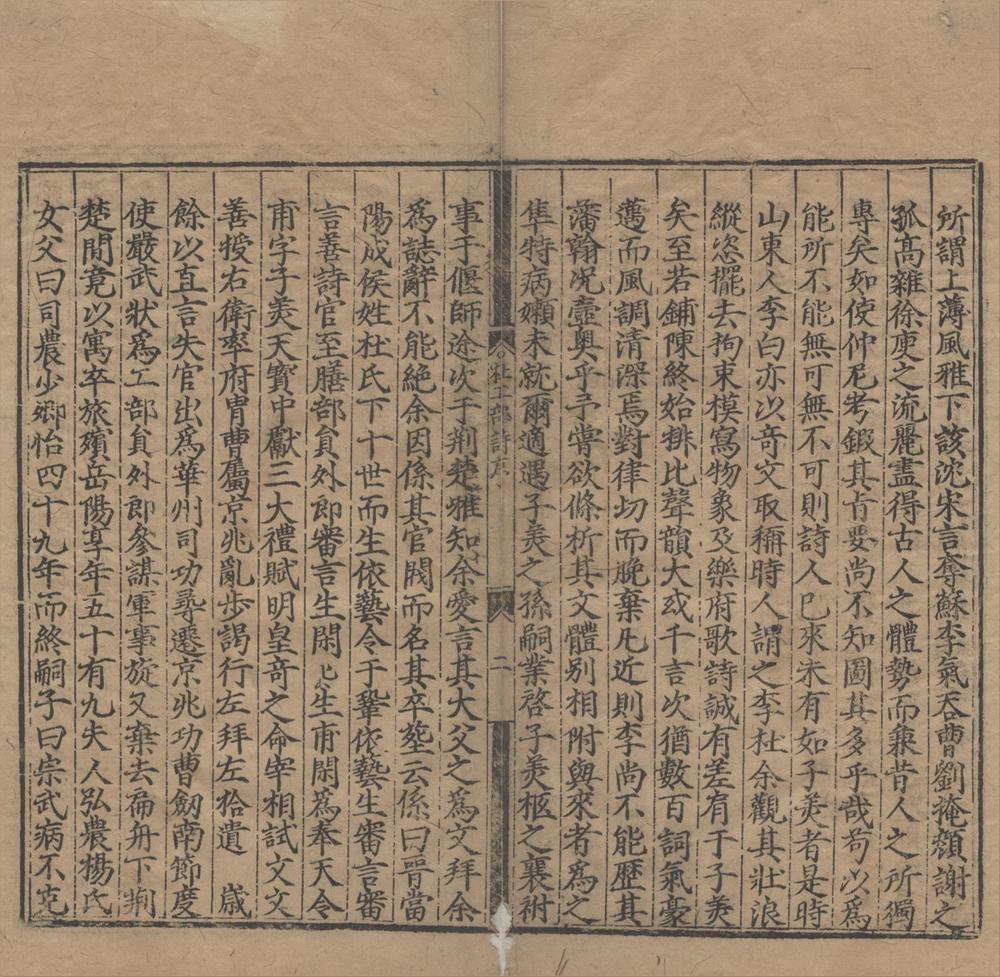 所謂上薄風雅下該沈宋言奪蘇李氣吞曹劉掩顏謝之
孤高雜徐庾之流麗盡得古人之體勢而兼昔人之所獨
專矣如使仲尼考鍛其旨要尚不知圖其多乎哉苟以爲
能所不能無可無不可則詩人已來未有如子美者是時
山東人李白亦以奇文取稱時人謂之李杜余觀其壯浪
縱恣擺去拘束模寫物象及樂府歌詩誠有差肩于子美
矣至若鋪陳終始排比聲韻大或千言次猶數百詞氣豪
邁而風調清深焉對律切而脫棄凡近則李尚不能歷其
藩翰况壼奥乎予嘗欲條析其文體別相附與來者爲之
隼特病嬾未就爾適遇子美之孫嗣業啓子美柩之襄祔
杜工部詩序
二
事于偃師途次于荆楚雅知余愛言其大父之爲文拜余
爲誌辭不能絶余因係其官閥而名其卒塟云係曰晉當
陽成侯姓杜氏下十世而生依藝令于鞏依藝生審言審
言善詩官至膳部負外郎審言生閑匕生甫閑爲奉天令
甫字子美天寶中獻三大禮賦明皇奇之命宰相試文文
善授右衛率府胄曹屬京兆亂步謁行左拜左拾遺 歲
餘以直言失官出爲華州司功尋遷京兆功曹劒南節度
使嚴武狀爲工部負外郎參謀軍事旋又棄去扁舟下荆
楚間竟以寓卒旅殯岳陽享年五十有九夫人弘農楊氏
女父曰司農少卿怡四十九年而終嗣子曰宗武病不克